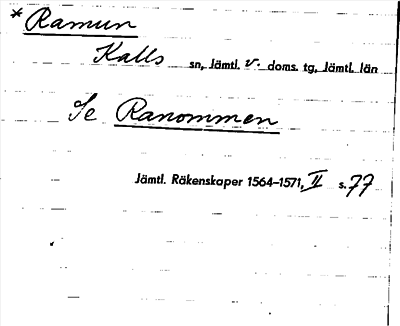 * Ramun
Kalls sn, Jämtl. v. doms. tg, Jämtl. län
Se Ranommen
Jämtl. Räkenskaper 1564–1571, II s. 77